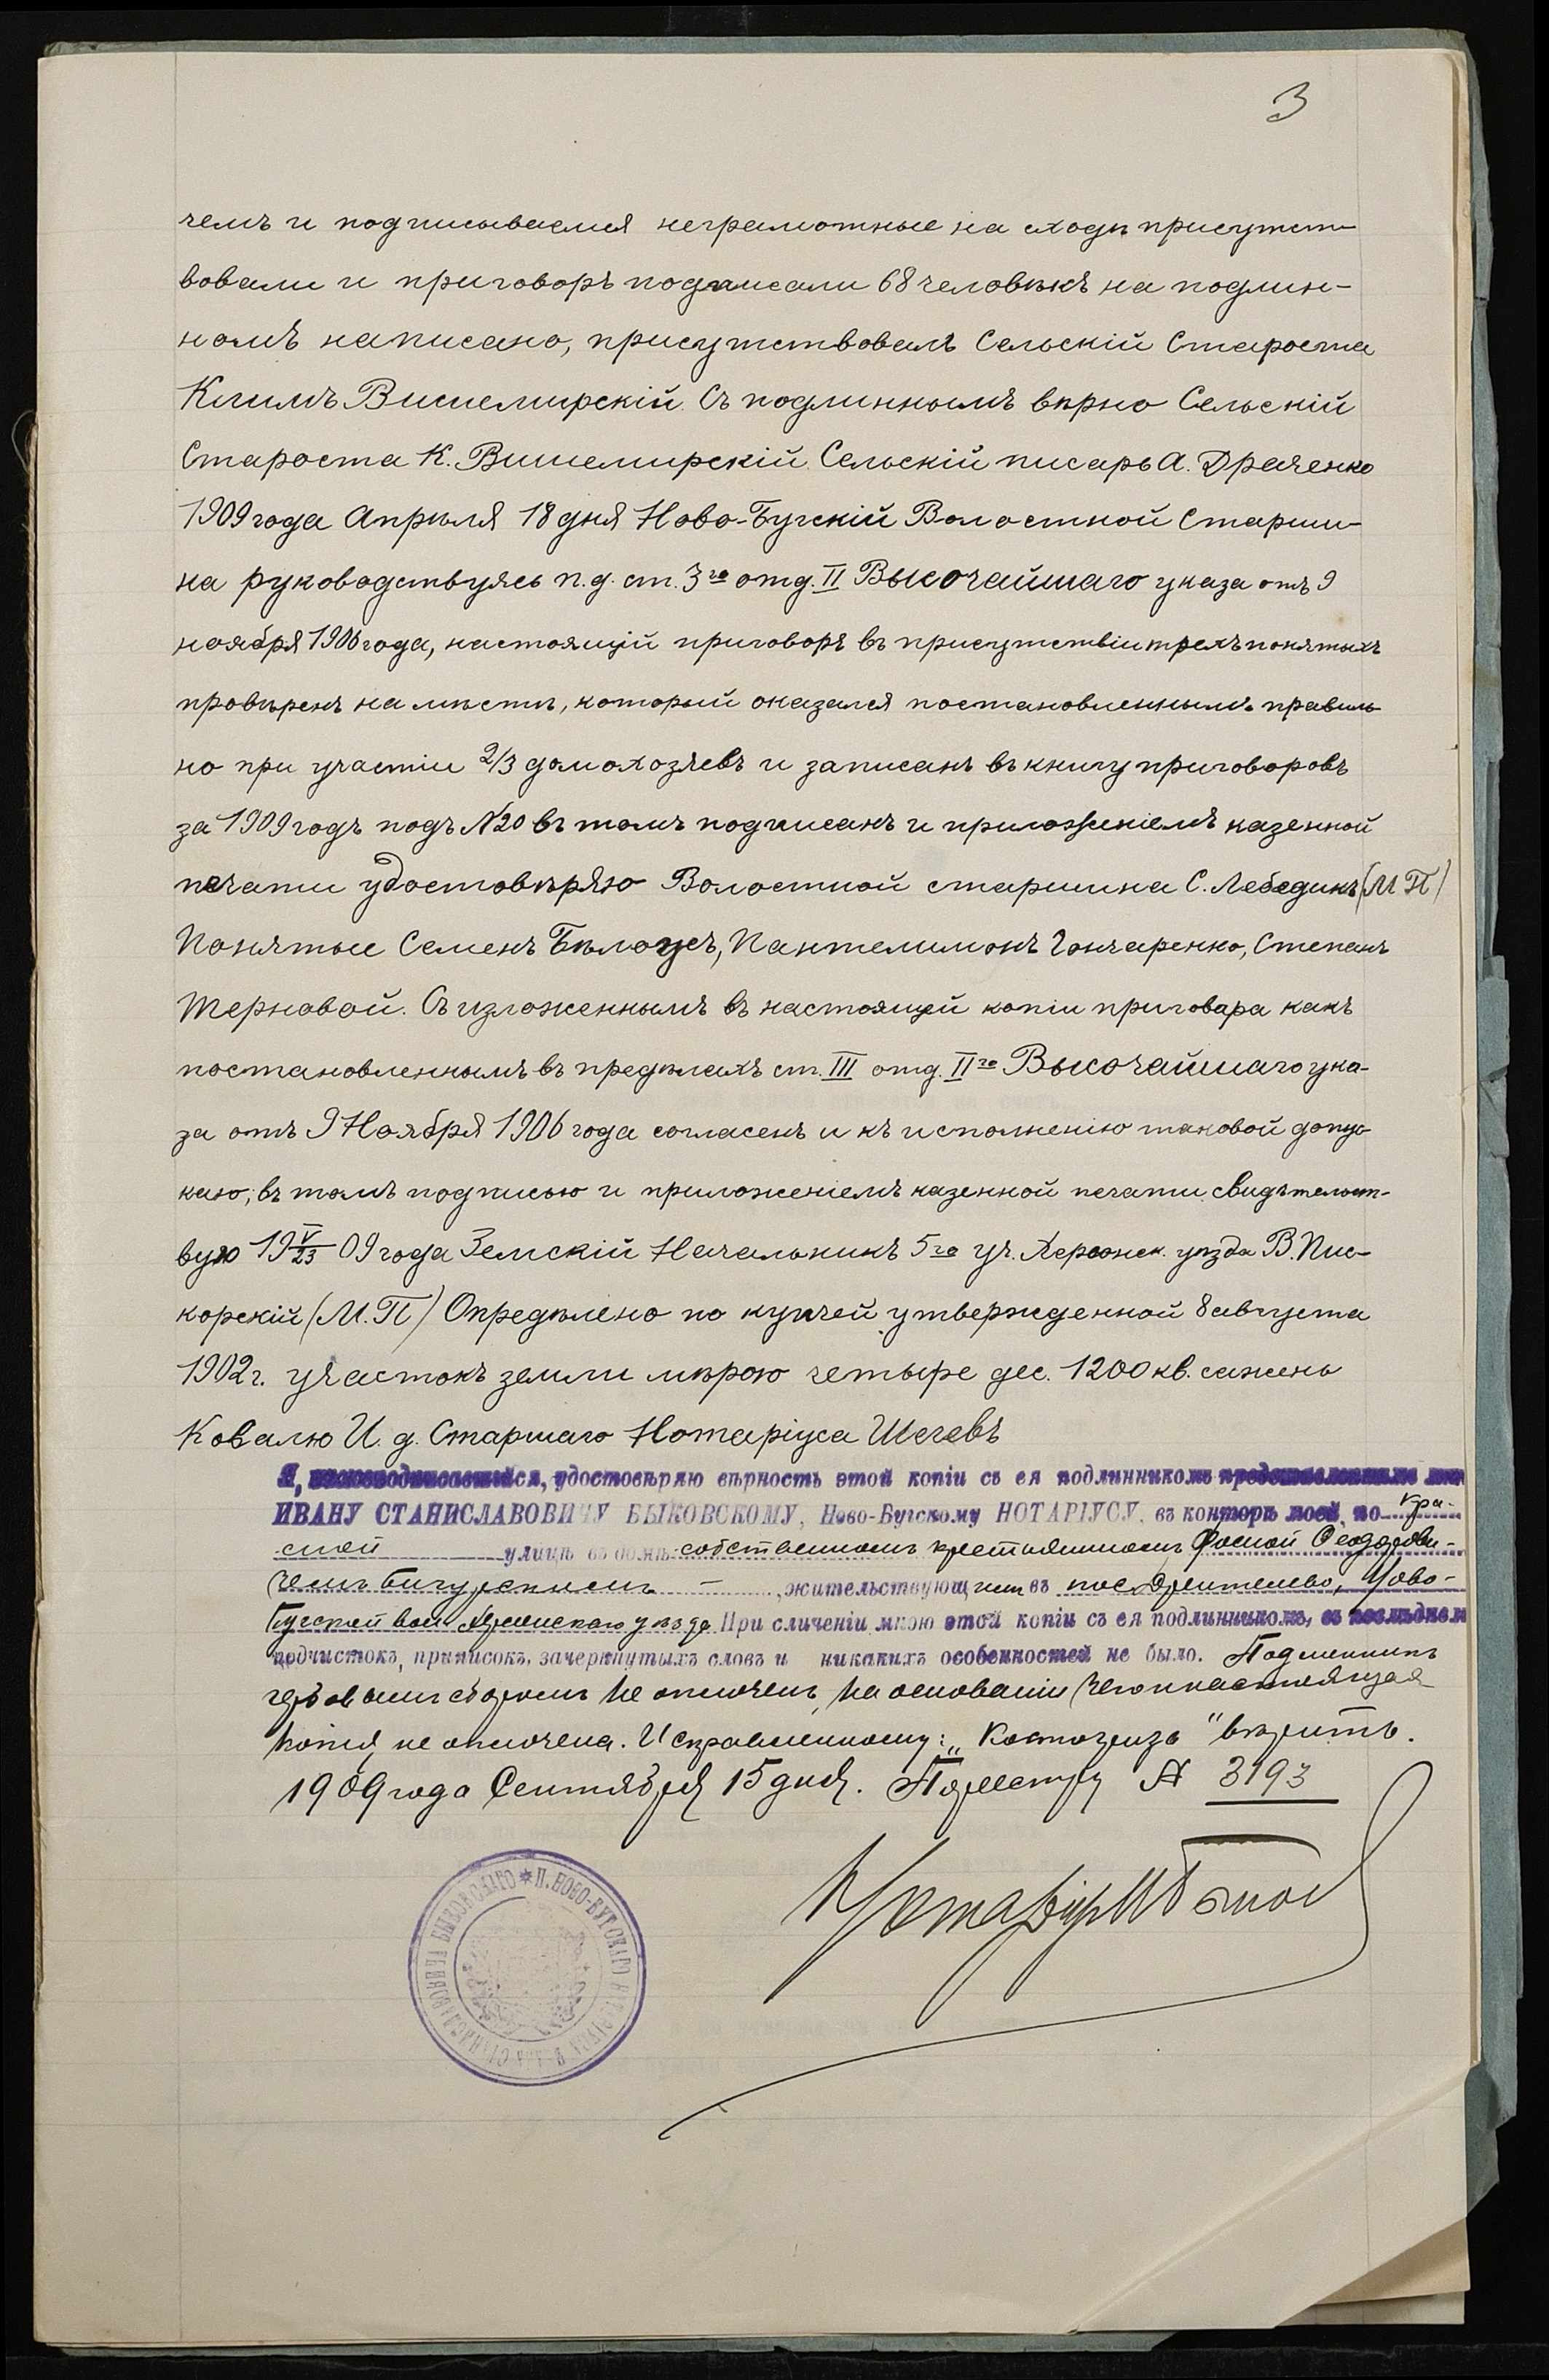 3
чемъ и подписываемся неграмотные на сходѣ присутст-
вовали и приговоръ подписали 68 человѣкъ на подлин-
номъ написано, присутствовалъ Сельскій Староста
Климъ Вишемирскій. Съ подлиннымъ вѣрно Сельскій
Староста К. Вишемирскій. Сельскій писарь А. Драченко
1909 года Апрѣля 18 дня Ново-Бугскій Волостной Старши-
на руководствуясь п. д. ст. 3го отд. II Высочайшаго указа отъ 9
ноября 1906 года, настоящій приговоръ въ присутствіи трехъ понятыхъ
провѣренъ на мѣстѣ, который оказался постановленнымъ правиль-
но при участіи 2/3 домохозяевъ и записанъ въ книгу приговоровъ
за 1909 годъ подъ №20 въ томъ подписанъ и приложеніемъ казенной
печати удостовѣряю Волостной старшина С. Лебединъ (М П)
Понятые Семенъ Бѣлоусъ, Пантелимонъ Гончаренко, Степанъ
Терновой. Съ изложеннымъ въ настоящей копіи приговора какъ
постановленнымъ въ предѣлахъ ст. III отд. IIго Высочайшаго ука-
за отъ 9 Ноября 1906 года согласенъ и къ исполненію таковой допус-
каю, въ томъ подписью и приложеніемъ казенной печати свидѣтельст-
вую 19 V/23 09 года Земскій Начальникъ 5го уч. Херсонск. уѣзда В. Пис-
корскій (М. П) Опредѣлено по купчей утвержденной 8 августа
1902 г. участокъ земли мѣрою четыре дес. 1200 кв. сажень
Ковалю И. д. Старшаго Нотаріуса Щегевъ
Я, удостовѣряю вѣрность этой копіи съ ея подлинникомъ
ИВАНУ СТАНИСЛАВОВИЧУ БЫКОВСКОМУ, Ново-Бугскому НОТАРІУСУ, въ конторѣ моей, по Кра-
сной улицѣ въ домѣ собственномъ крестьяниномъ Фомой Ѳеодорови-
чемъ, жительствующимъ въ пос. Ново-
Бугской вол. Херсонскаго уѣзда При сличеніи мною этой копіи съ ея подлинникомъ, въ послѣднемъ
подчистокъ, приписокъ, зачеркнутыхъ словъ и никакихъ особенностей не было. Подлинникъ
гербовымъ сборомъ не оплоченъ, на основаніи чего и настоящая
копія не оплочена. Исправленному: „ " вѣрить.
1909 года Сентября 15 дня. По реестру № 3193
Нотаріусъ И Быков
* П. НОВО-БУГСКАГО НОТАРІУСА ИВАНА СТАНИСЛАВОВИЧА БЫКОВСКАГО